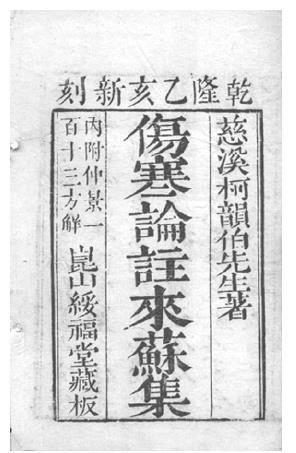 乾隆乙亥新刻
慈溪柯韻伯先生著
傷寒論註來蘇集
內附仲景一
百十三方解
崑山綏福堂藏板